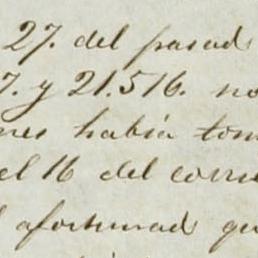 27. del pasado
7. y 21.516. no
nes había tom
el 16 del corri
l afortunado qu